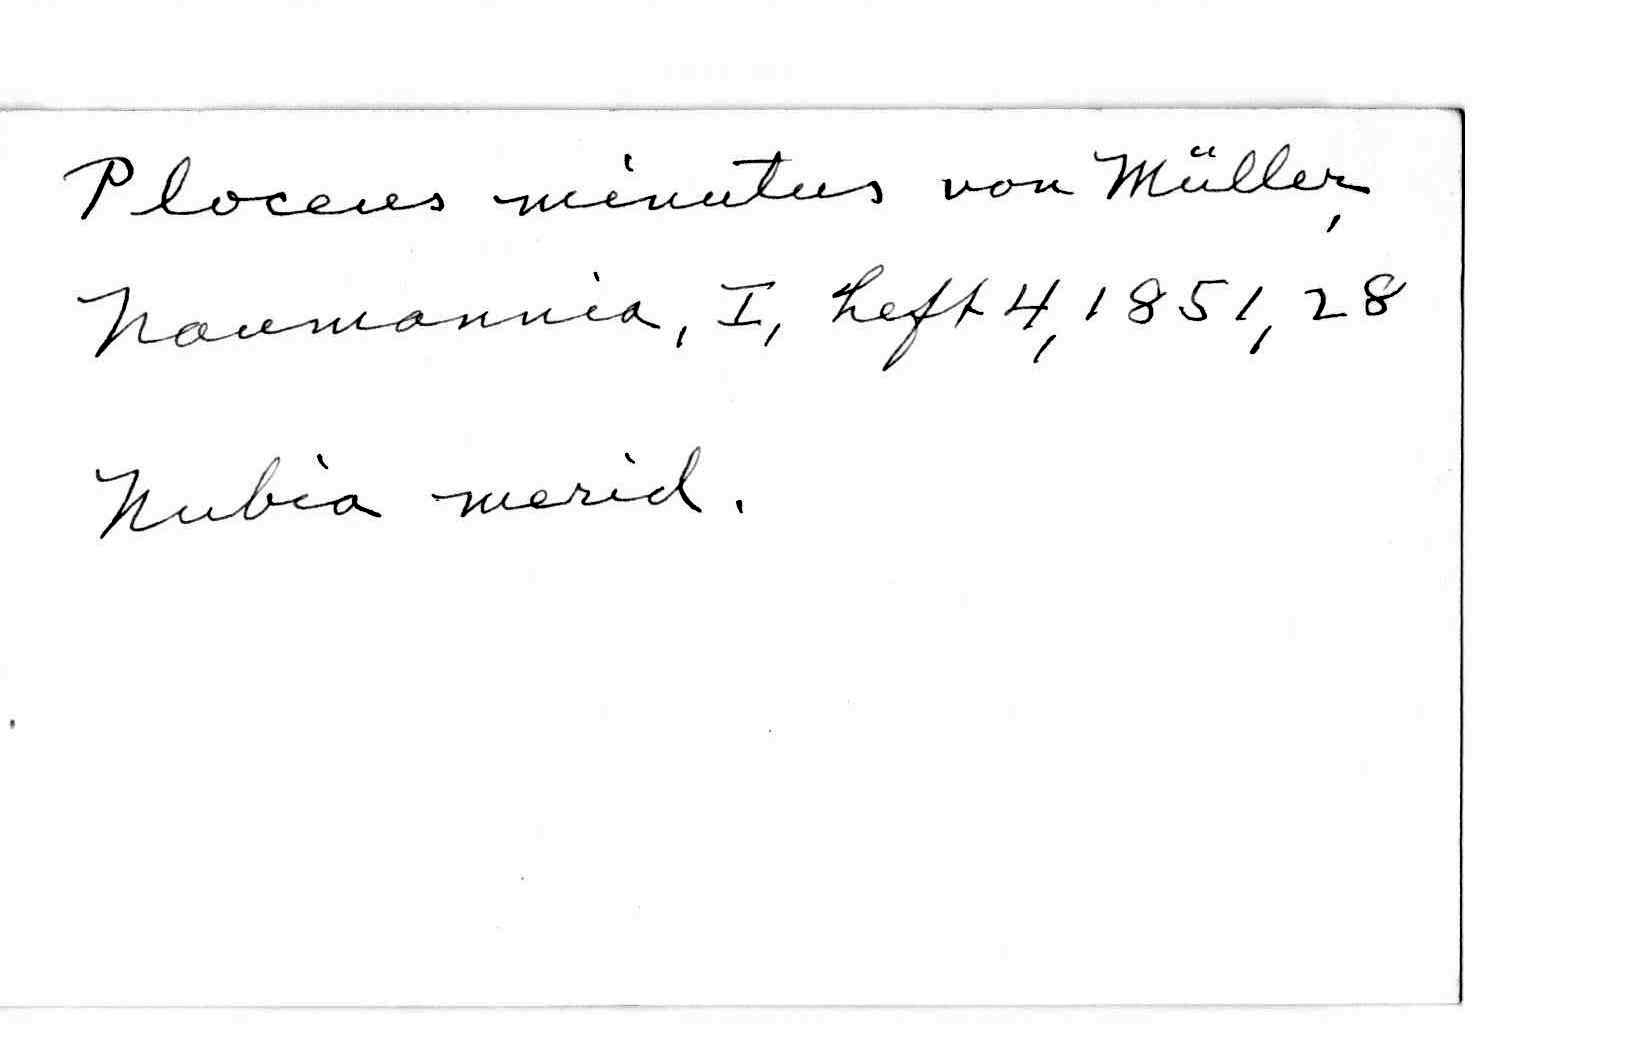 Ploceus minutus von Müller,
Naumannia, I, heft 4, 1851, 28
Nubia merid.